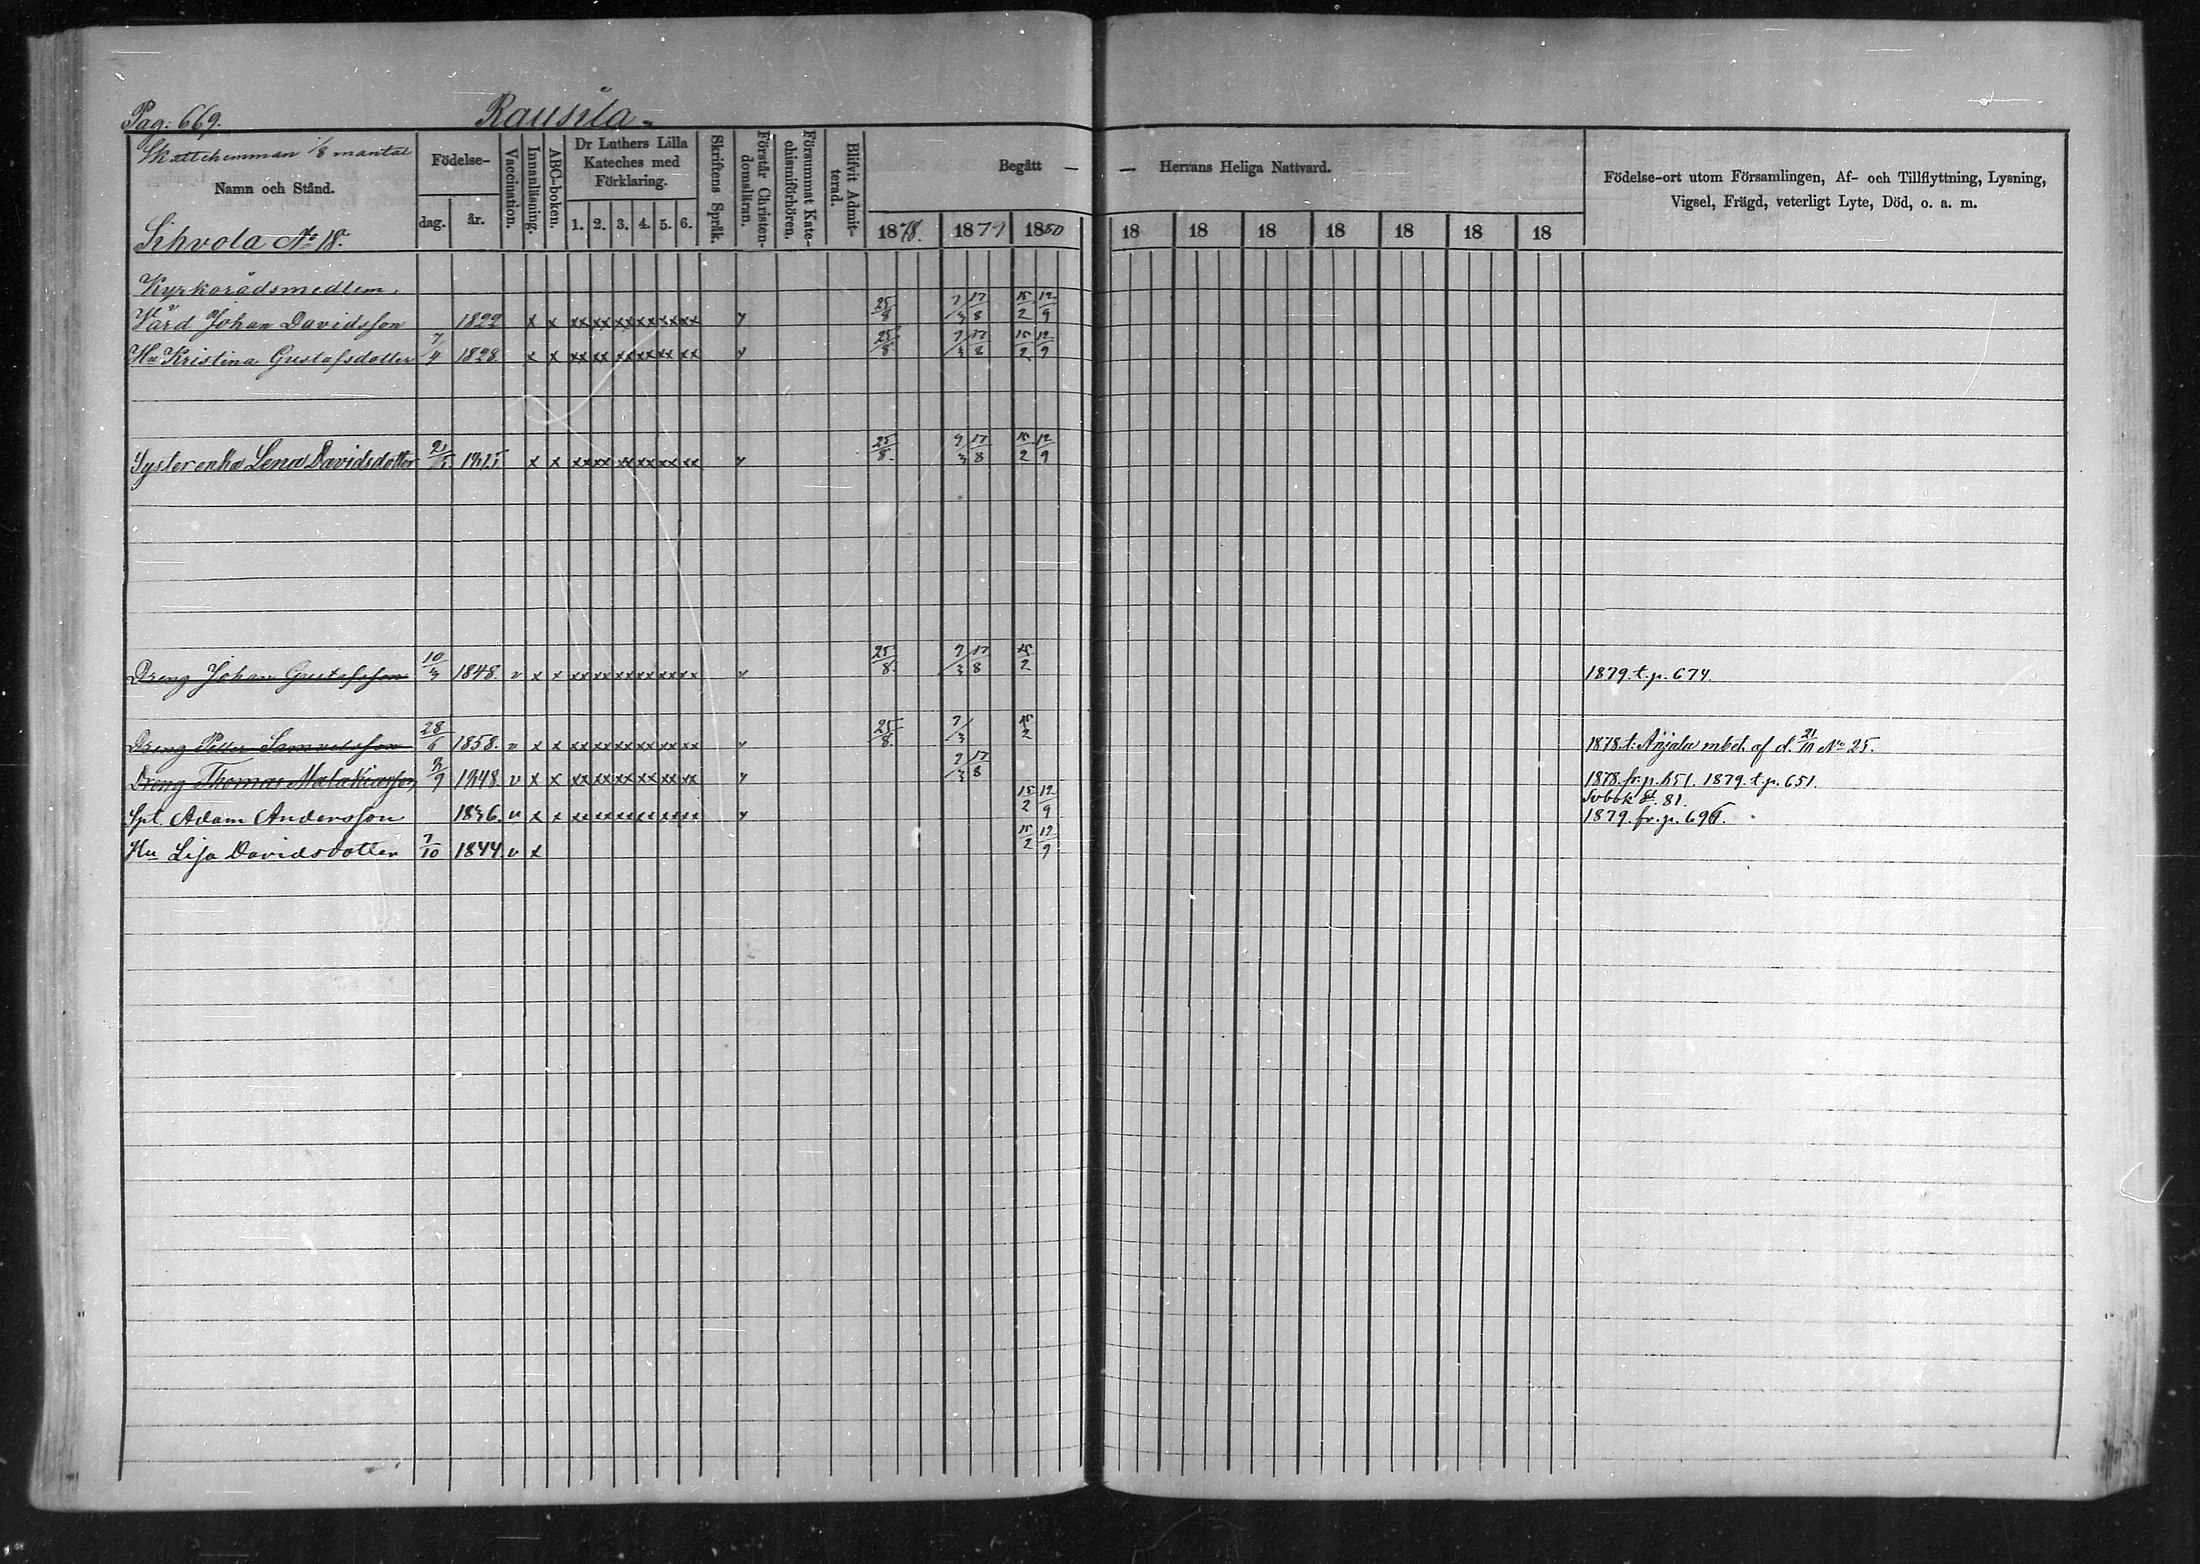 Pag: 669. Rausila
Skattehemman 1/8 mantal
Namn och Stånd.
Sihvola No 18.
Födelse-
dag. år.
Vaccination.
Innanläsning.
ABC-boken.
Dr Luthers Lilla
Kateches med
Förklaring.
1. 2. 3. 4. 5. 6.
Skriftens Språk.
Förstår Christen-
domsläran.
Försummat Kate-
chismiförhören.
Blifvit Admit-
terad.
Begått — — Herrans Heliga Nattvard.
1878. 1879 1880 18 18 18 18 18 18 18
Födelse-ort utom Församlingen, Af- och Tillflyttning, Lysning,
Vigsel, Frägd, veterligt Lyte, Död, o. a. m.
Kyrkorådsmedlem.
Värd Johan Davidsson 1822 x x xx xx xx xx xx xx y 25/8 9/3 17/8 15/2 12/9
Hu Kristina Gustafsdotter 7/4 1828 x x xx xx xx xx xx xx y 25/8 9/3 17/8 15/2 12/9
Syster enka Lena Davidsdotter 1815 x x xx xx xx xx xx xx y 25/8 9/3 17/8 15/2 12/9
Dreng Johan Gustafsson 10/3 1848. v x x xx xx xx xx xx xx y 25/8 9/3 17/8 15/2 1879. t. p. 674.
Dreng Petter Samuelsson 28/6 1858. v x x xx xx xx xx xx xx y 25/8 9/3 15/2 1878. t: Anjala mbet. af d. 21/11 No 25.
Dreng Thomas Malakiasson 1848 v x x xx xx xx xx xx xx y 9/3 17/8 1878. fr. p. 651. 1879. t. p. 651.
Sobok 81.
Spt. Adam Andersson 1836. v x x xx xx xx xx xx xx y 15/2 12/9 1879. fr. p.
Hu Lisa Davidsdotter 7/10 1844 v x 15/2 12/9